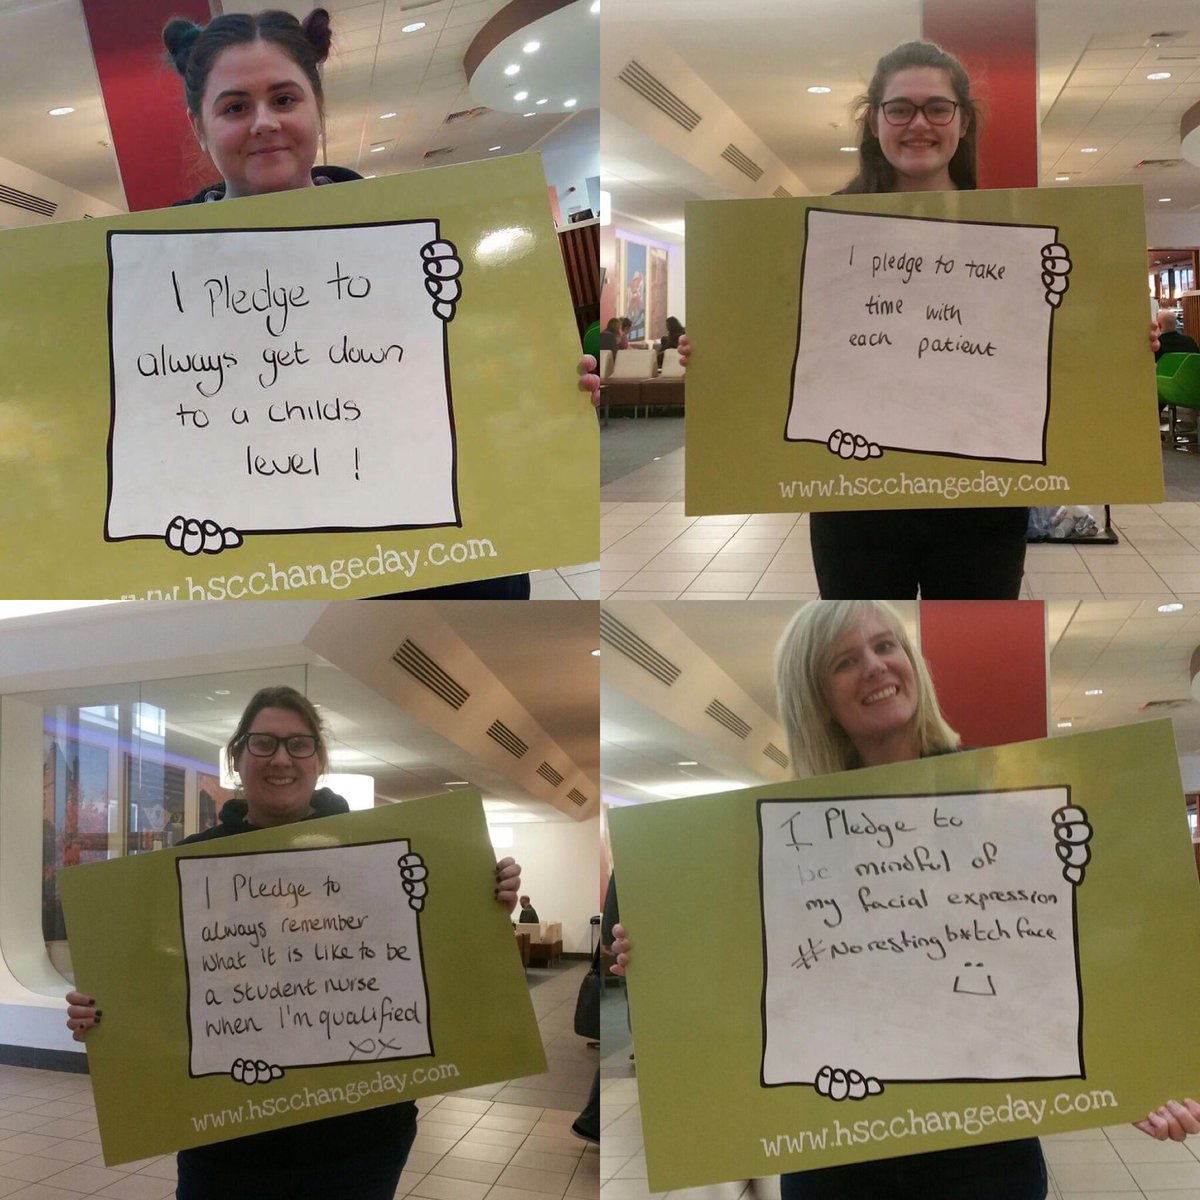 I Pledge to
always get down
to a childs
level !
www.hscchangeday.com
I pledge to take
time with
each patient
www.hscchangeday.com
I Pledge to
always remember
what it is like to be
a student nurse
when I'm qualified
xx
www.hscchangeday.com
I Pledge to
be mindful of
my facial expression
#Norestingb*tchface
www.hscchangeday.com